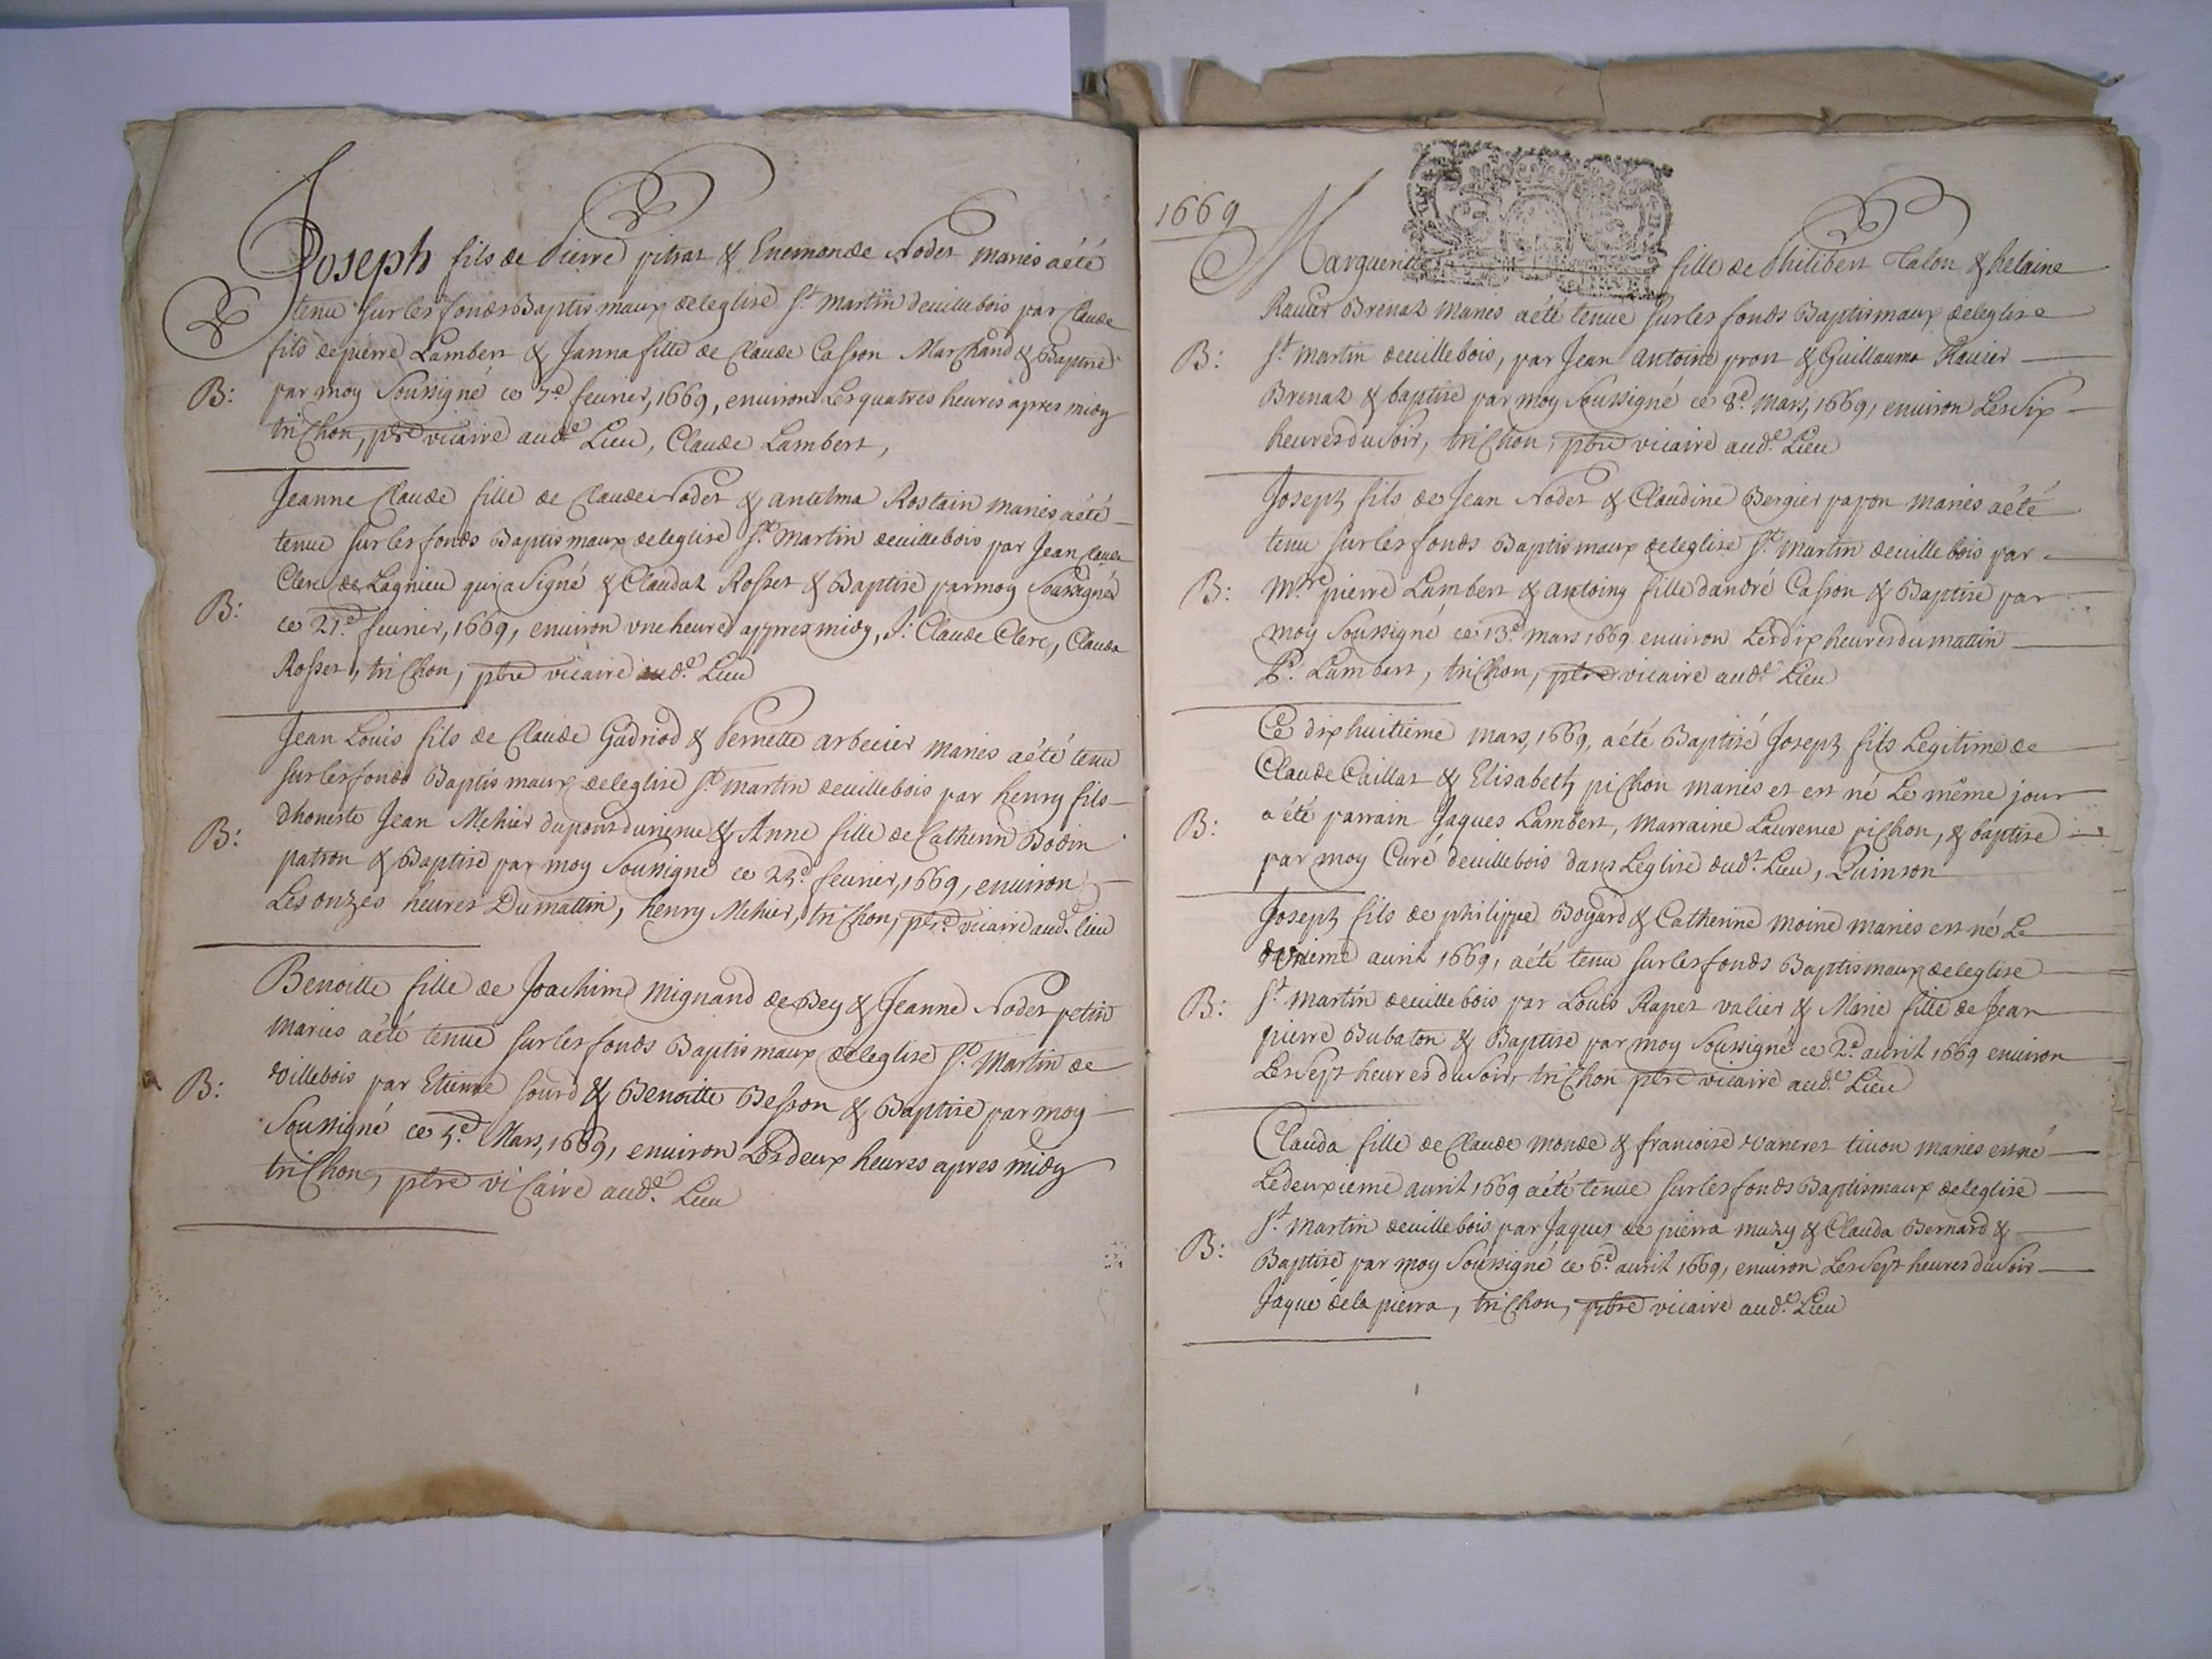 Joseph fils de Pierre pitrat & Enemonde Nodet mariés a été
tenu sur les fonds Baptismaux de leglise St. martin de villebois par Claude
fils de pierre Lambert & Janna fille de Claude Casson Marchand & Baptisé
B: par moy Soussigné ce 7e. fevrier, 1669, environ Les quatres heures apres midy
trichon, ptre vicaire aude. Lieu, Claude Lambert,
Jeanne Claude fille de Claude Nodet & antelma Rostain mariés a été
tenue sur les fonds Baptismaux de leglise St. martin de villebois par Jean Claude
Clerc de Lagnieu qui a Signé & Claudaz Rosset & Baptisé par moy Soussigné
B: ce 21e. fevrier, 1669, environ vne heure appres midy, J: Claude Clerc, Clauda
Rosset, trichon, ptre vicaire aude. Lieu
Jean Louis fils de Claude Gadriod & Pernette arbecier mariés a été tenu
sur les fonds Baptismaux de leglise St. martin de villebois par henry fils
B: dhoneste Jean Mehier du pont & Anne fille de Catherin Bodin
patron & Baptisé par moy Soussigné ce fevrier, 1669, environ
Les onzes heures Du mattin, henry Mehier, trichon, ptre. vicaire aude. lieu
Benoitte fille de Joachim Mignand de Bey & Jeanne Nodet petit
mariés a été tenue sur les fonds Baptismaux de leglise St. Martin de
B: villebois par Etienne sourd & Benoitte Besson & Baptisé par moy
Soussigné ce 5e. Mars, 1669, environ Les deux heures apres midy
trichon, ptre vicaire aude. Lieu
1669
Marguerite fille de Philibert Talon & helaine
Ravier Brenaz mariés a été tenue sur les fonds Baptismaux de leglise
B: St. martin de villebois, par Jean antoine pron & Guillauma Ravier
Brenaz & baptisé par moy Soussigné ce 8e. mars, 1669, environ Les Six
heures du Soir, trichon, ptre vicaire aude. Lieu
Joseph fils de Jean Nodet & Claudine Bergier papon mariés a été
tenu sur les fonds Baptismaux de leglise St. Martin de villebois par
B: Mre. pierre Lambert & antoiny fille dandré Casson & Baptisé par
moy Soussigné ce 13e. mars 1669 environ Les dix heures du mattin
Pe. Lambert, trichon, ptre vicaire aude. Lieu
Ce dix huitieme mars, 1669, a été Baptisé Joseph fils Legitime de
Claude Caillat & Elisabeth pichon mariés et est né Le même jour
B: a été parrain Jaques Lambert, marraine Laurence pichon, & baptisé
par moy Curé de villebois dans Leglise dudt. Lieu, Quinson
Joseph fils de philippe Bogard & Catherine moine mariés est né Le
avril 1669, a été tenu sur les fonds Baptismaux de leglise
B: St. martin de villebois par Louis Rapet valier & Marie fille de Jean
pierre Dubaton & Baptisé par moy Soussigné ce 2e. avril 1669 environ
Les Sept heures du Soir, trichon ptre vicaire aude. Lieu
Clauda fille de Claude monde & francoise vaneret tivon mariés est né
Le deuxieme avril 1669 a été tenue sur les fonds Baptismaux de leglise
St. martin de villebois par Jaques de pierra muzy & Clauda Bernard &
B: Baptisé par moy Soussigné ce 6e. avril 1669, environ Les Sept heures du Soir
Jaque de la pierra, trichon, ptre vicaire aude. Lieu